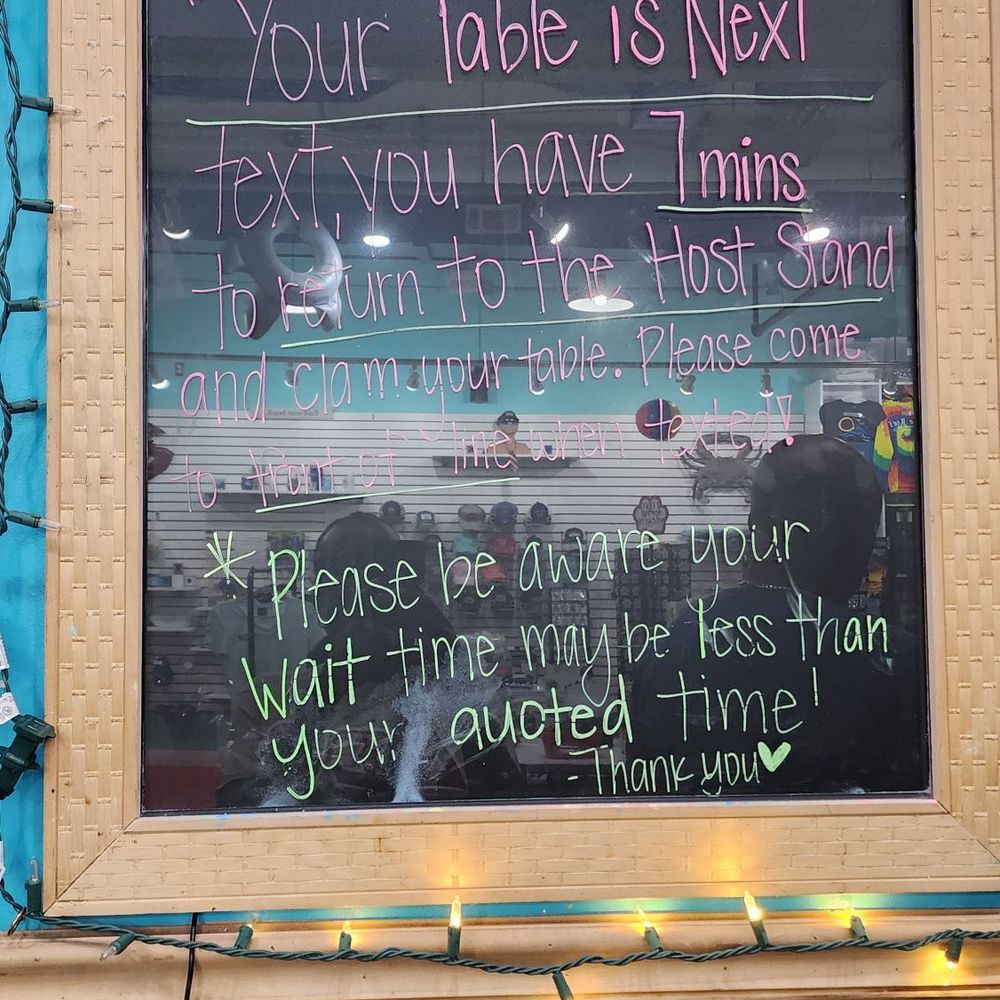 "Your Table is Next
text, you have 7mins
to return to the Host Stand
and claim your table. Please come
to front of line when texted!
* Please be aware your
wait time may be less than
your quoted time!
- Thank you♥